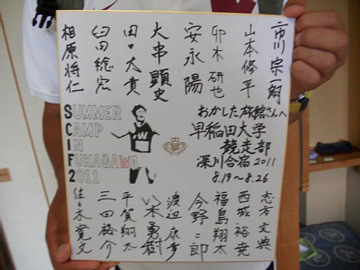 市川宗一朗
山本修平
卯木研也
安永陽
大串顕史
田口大貴
臼田総宏
相原将仁
おかした旅館さんへ
早稲田大学
競走部
深川合宿2011
8.19～8.26
SUMMER
CAMP
IN
FUKAGAWA
2011
志方文典
西城裕尭
福島翔太
今野二郎
渡辺
八木勇樹
平賀翔太
三田裕介
佐々木寛文